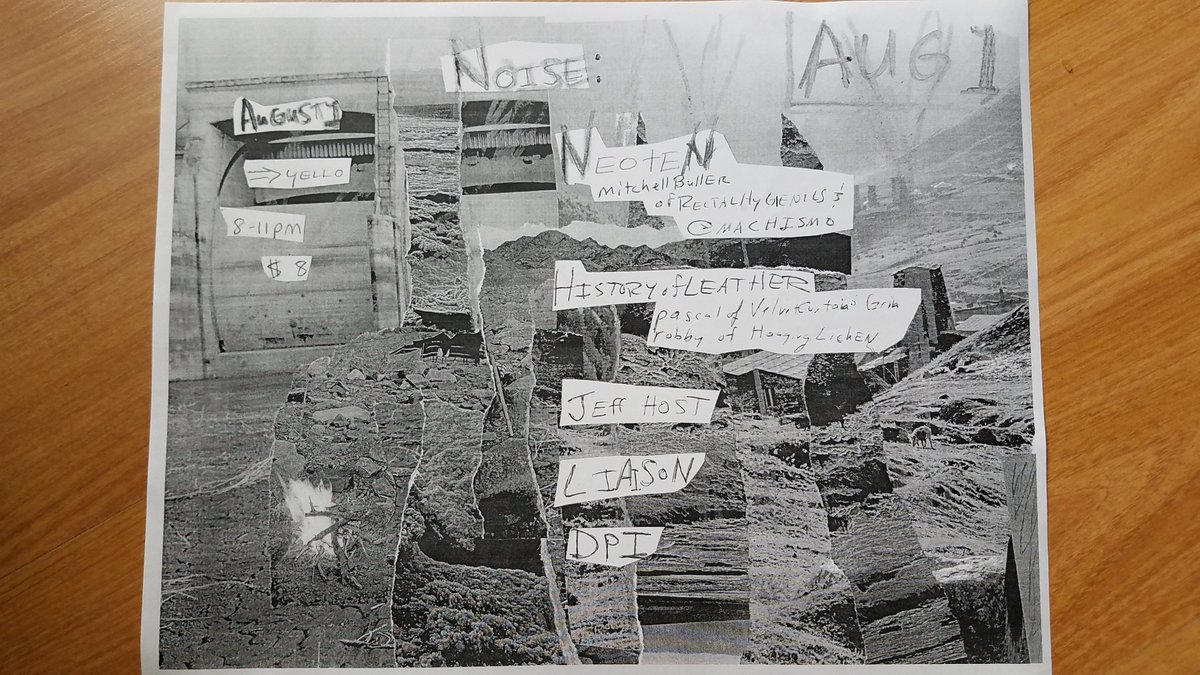 AUGUST 1
⇒ YELLO
8-11pm
$8
NOISE:
AUG 1
NEOTEN
mitchell Buller
of RECTAL HYGENICS &
@MACHISMO
HISTORY of LEATHER
pascal of Velvet Curtain
robby of Hanging Lichen
JEFF HOST
LIAISON
DPI